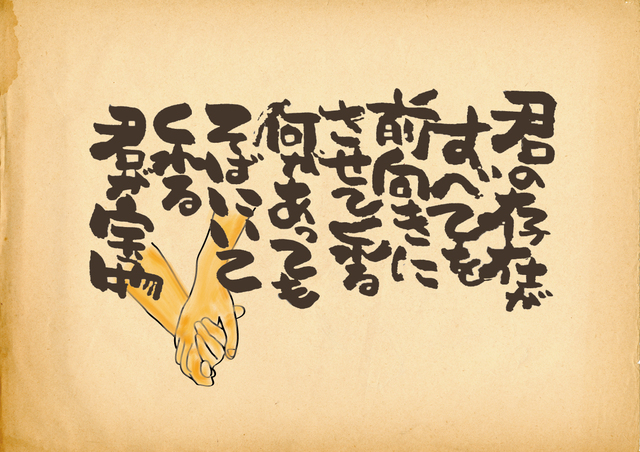 君の存在が
すべてを
前向きに
させてくれる
何があっても
そばにいて
くれる
君が宝物